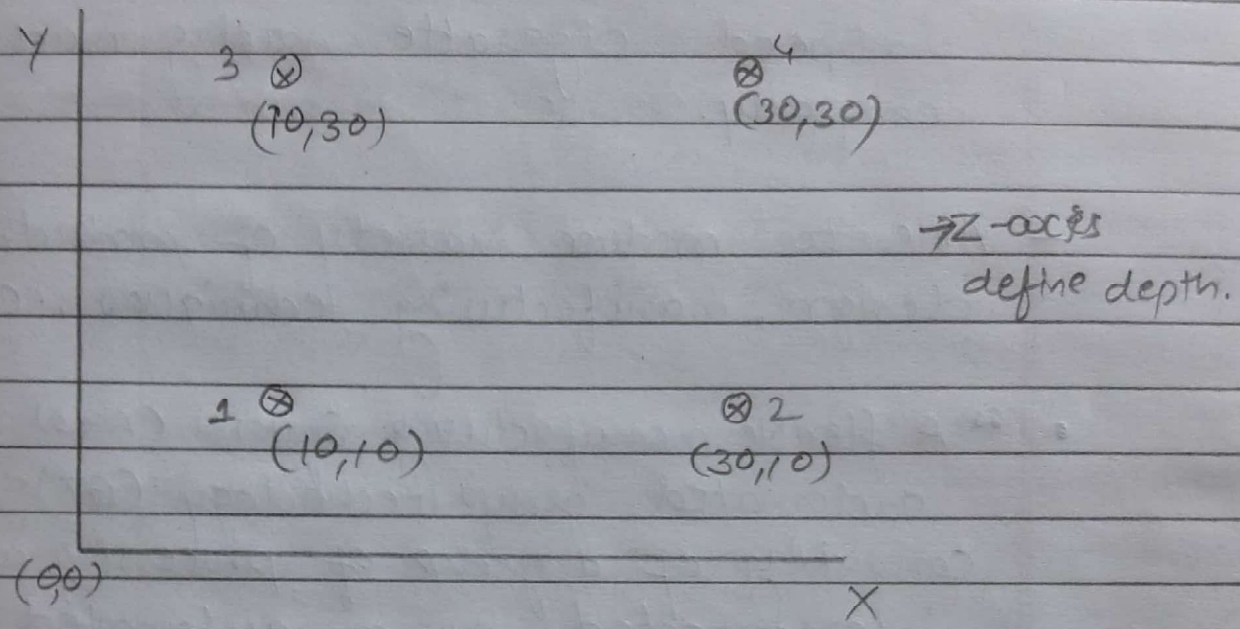 Y
3
4
(10,30)
(30,30)
→Z-axis
define depth.
1
2
(10,10)
(30,10)
(0,0)
X